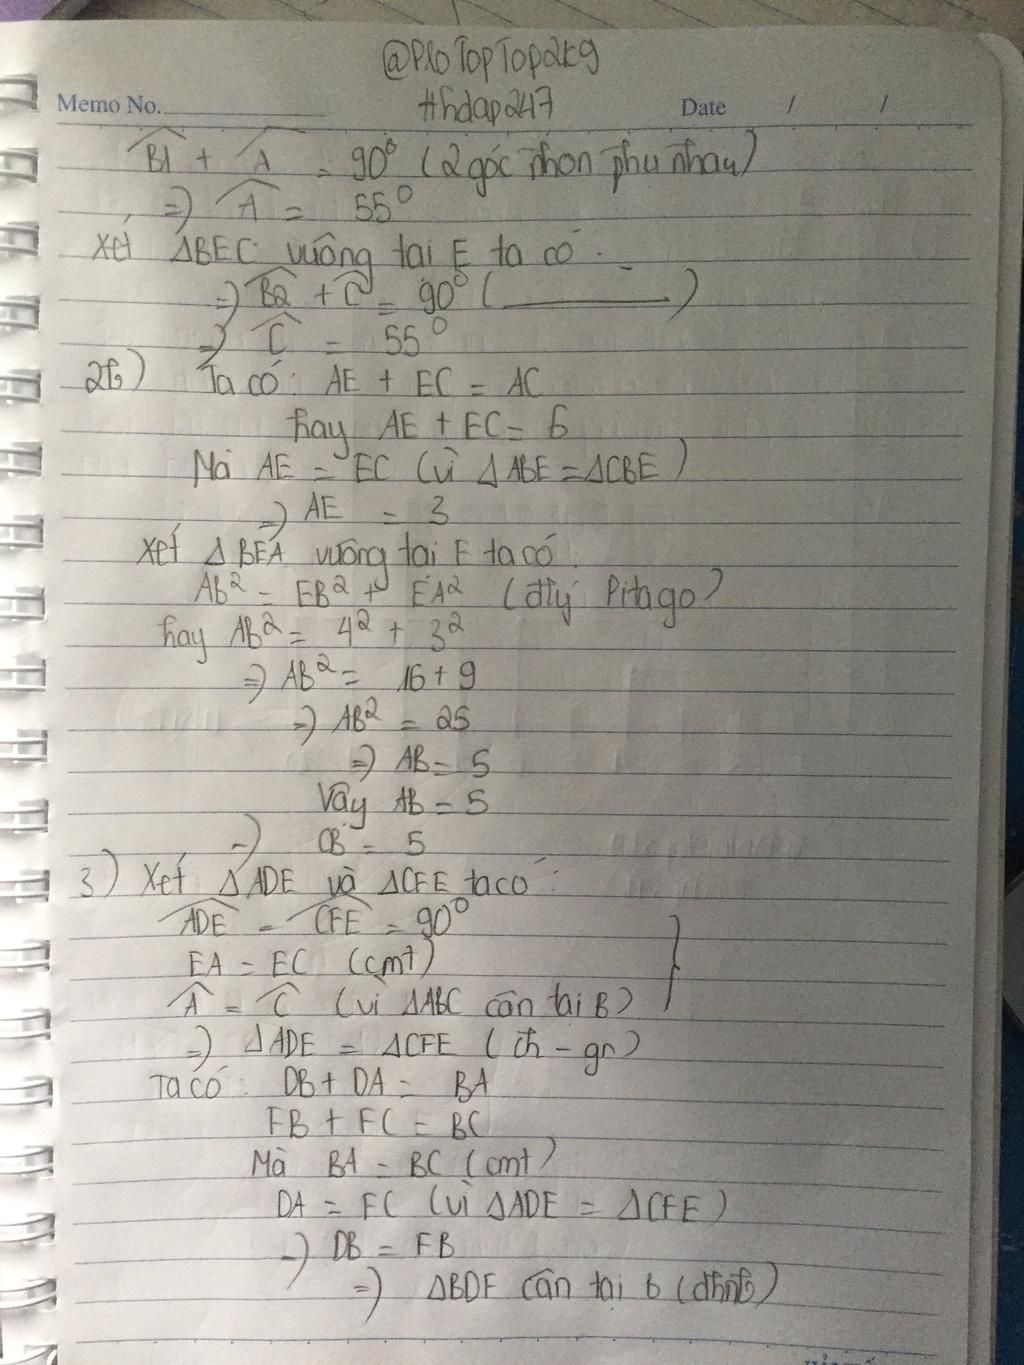 @PloTopTop2k9
Memo No. #hdap247 Date / /
B1 + A = 90° (2 góc nhọn phụ nhau)
=> A = 55°
Xét ΔBEC vuông tại E ta có:
=> B2 + C = 90° ( )
=> C = 55°
2b) Ta có: AE + EC = AC
hay AE + EC = 6
Mà AE = EC (vì ΔABE = ΔCBE)
=> AE = 3
Xét ΔBEA vuông tại E ta có:
AB² = EB² + EA² (đlý Pitago)
hay AB² = 4² + 3²
=> AB² = 16 + 9
=> AB² = 25
=> AB = 5
Vậy AB = 5
=> CB = 5
3) Xét ΔADE và ΔCFE ta có:
ADE = CFE = 90°
EA = EC (cmt)
A = C (vì ΔABC cân tại B)
=> ΔADE = ΔCFE (ch - gn)
Ta có: DB + DA = BA
FB + FC = BC
Mà BA = BC (cmt)
DA = FC (vì ΔADE = ΔCFE)
=> DB = FB
=> ΔBDF cân tại B (đhnb)